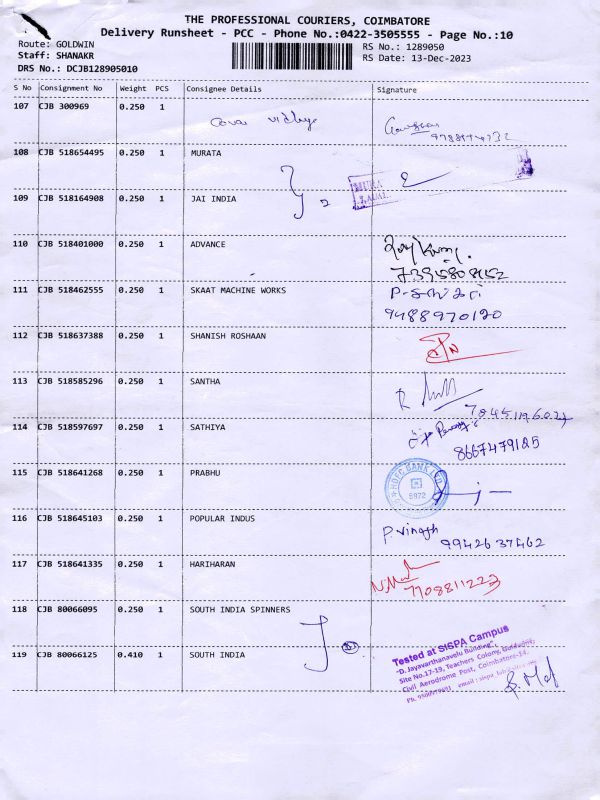 THE PROFESSIONAL COURIERS, COIMBATORE
Delivery Runsheet - PCC - Phone No.:0422-3505555 - Page No.:10
Route: GOLDWIN
RS No.: 1289050
Staff: SHANAKR
RS Date: 13-Dec-2023
DRS No.: DCJB128905010
S No Consignment No Weight PCS Consignee Details Signature
107 CJB 300969 0.250 1
108 CJB 518654495 0.250 1 MURATA
109 CJB 518164908 0.250 1 JAI INDIA
110 CJB 518401000 0.250 1 ADVANCE
111 CJB 518462555 0.250 1 SKAAT MACHINE WORKS
9488970120
112 CJB 518637388 0.250 1 SHANISH ROSHAAN
113 CJB 518585296 0.250 1 SANTHA
114 CJB 518597697 0.250 1 SATHIYA
8667479125
115 CJB 518641268 0.250 1 PRABHU
HDFC BANK LTD
116 CJB 518645103 0.250 1 POPULAR INDUS
9942637462
117 CJB 518641335 0.250 1 HARIHARAN
7708811223
118 CJB 80066095 0.250 1 SOUTH INDIA SPINNERS
119 CJB 80066125 0.410 1 SOUTH INDIA
Tested at SISPA Campus
"D. Jayavarthanavelu Building",
Site No.17-19, Teachers Colony, Goldwins,
Civil Aerodrome Post, Coimbatore-14.